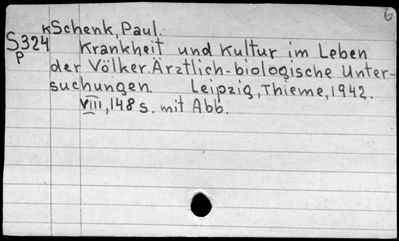 6
kSchenk, Paul.
S324 Krankheit und Kultur im Leben
p
der Völker. Ärztlich-biologische Unter-
suchungen. Leipzig, Thieme, 1942.
VIII, 148 s. mit Abb.